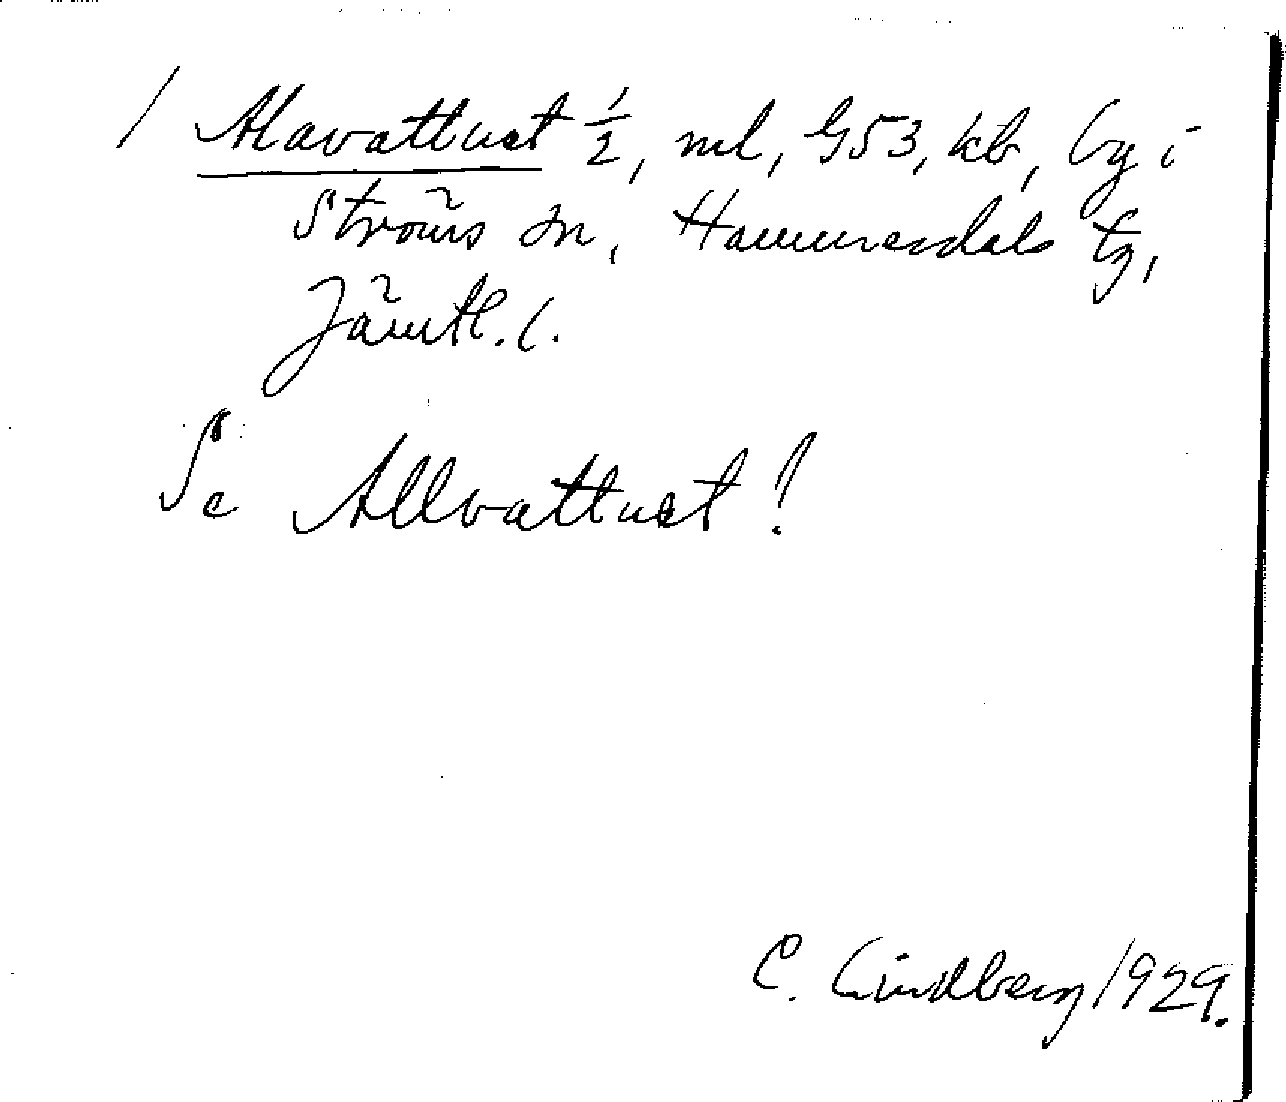 / Alavattnet 1/2, ml, G53, kb, by i
Ströms sn, Hammerdals tg,
Jämtl. l.
Se Allvattnet!
C. Lindberg 1929.